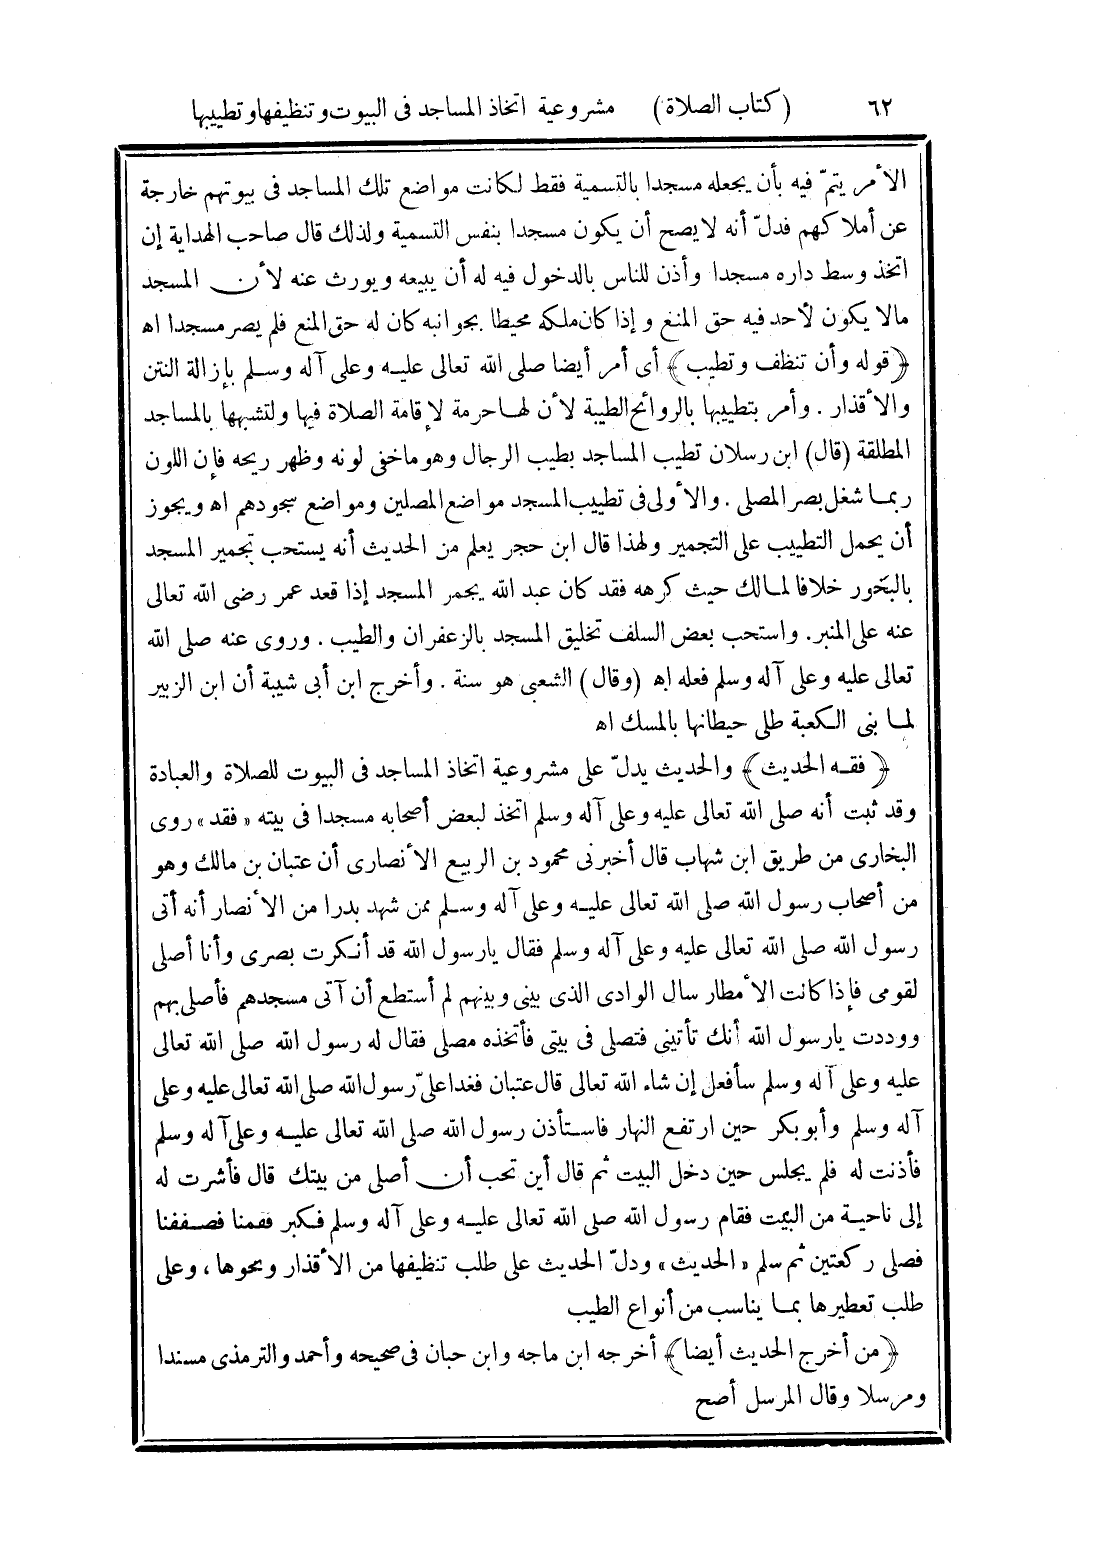 ٦٢ (كتاب الصلاة) مشروعية اتخاذ المساجد فى البيوت وتنظيفها وتطييبها
الأمر يتمّ فيه بأن يجعله مسجدا بالتسمية فقط لكانت مواضع تلك المساجد فى بيوتهم خارجة
عن أملاكهم فدلّ أنه لا يصح أن يكون مسجدا بنفس التسمية ولذلك قال صاحب الهداية إن
اتخذ وسط داره مسجدا وأذن للناس بالدخول فيه له أن يبيعه ويورث عنه لأن المسجد
مالا يكون لأحد فيه حق المنع وإذا كان ملكه محيطا بجوانبه كان له حق المنع فلم يصر مسجدا اه
﴿قوله وأن تنظف وتطيب﴾ أى أمر أيضا صلى الله تعالى عليه وعلى آله وسلم بإزالة النتن
والأقذار . وأمر بتطييبها بالروائح الطيبة لأن لها حرمة لإقامة الصلاة فيها ولتشبهها بالمساجد
المطلقة (قال) ابن رسلان تطيب المساجد بطيب الرجال وهو ما خفى لونه وظهر ريحه فإن اللون
ربما شغل بصر المصلى . والأولى فى تطييب المسجد مواضع المصلين ومواضع سجودهم اه ويجوز
أن يحمل التطييب على التجمير ولهذا قال ابن حجر يعلم من الحديث أنه يستحب تجمير المسجد
بالبخور خلافا لمالك حيث كرهه فقد كان عبد الله يجمر المسجد إذا قعد عمر رضى الله تعالى
عنه على المنبر. واستحب بعض السلف تخليق المسجد بالزعفران والطيب . وروى عنه صلى الله
تعالى عليه وعلى آله وسلم فعله اه (وقال) الشعبى هو سنة . وأخرج ابن أبى شيبة أن ابن الزبير
لما بنى الكعبة طلى حيطانها بالمسك اه
﴿فقه الحديث﴾ والحديث يدلّ على مشروعية اتخاذ المساجد فى البيوت للصلاة والعبادة
وقد ثبت أنه صلى الله تعالى عليه وعلى آله وسلم اتخذ لبعض أصحابه مسجدا فى بيته «فقد» روى
البخارى من طريق ابن شهاب قال أخبرنى محمود بن الربيع الأنصارى أن عتبان بن مالك وهو
من أصحاب رسول الله صلى الله تعالى عليه وعلى آله وسلم ممن شهد بدرا من الأنصار أنه أتى
رسول الله صلى الله تعالى عليه وعلى آله وسلم فقال يارسول الله قد أنكرت بصرى وأنا أصلى
لقومى فإذا كانت الأمطار سال الوادى الذى بينى وبينهم لم أستطع أن آتى مسجدهم فأصلى بهم
ووددت يارسول الله أنك تأتينى فتصلى فى بيتى فأتخذه مصلى فقال له رسول الله صلى الله تعالى
عليه وعلى آله وسلم سأفعل إن شاء الله تعالى قال عتبان فغدا علىّ رسول الله صلى الله تعالى عليه وعلى
آله وسلم وأبو بكر حين ارتفع النهار فاستأذن رسول الله صلى الله تعالى عليه وعلى آله وسلم
فأذنت له فلم يجلس حين دخل البيت ثم قال أين تحب أن أصلى من بيتك قال فأشرت له
إلى ناحية من البيت فقام رسول الله صلى الله تعالى عليه وعلى آله وسلم فكبر فقمنا فصففنا
فصلى ركعتين ثم سلم «الحديث» ودلّ الحديث على طلب تنظيفها من الأقذار ونحوها ، وعلى
طلب تعطيرها بما يناسب من أنواع الطيب
﴿من أخرج الحديث أيضا﴾ أخرجه ابن ماجه وابن حبان فى صحيحه وأحمد والترمذى مسندا
ومرسلا وقال المرسل أصح